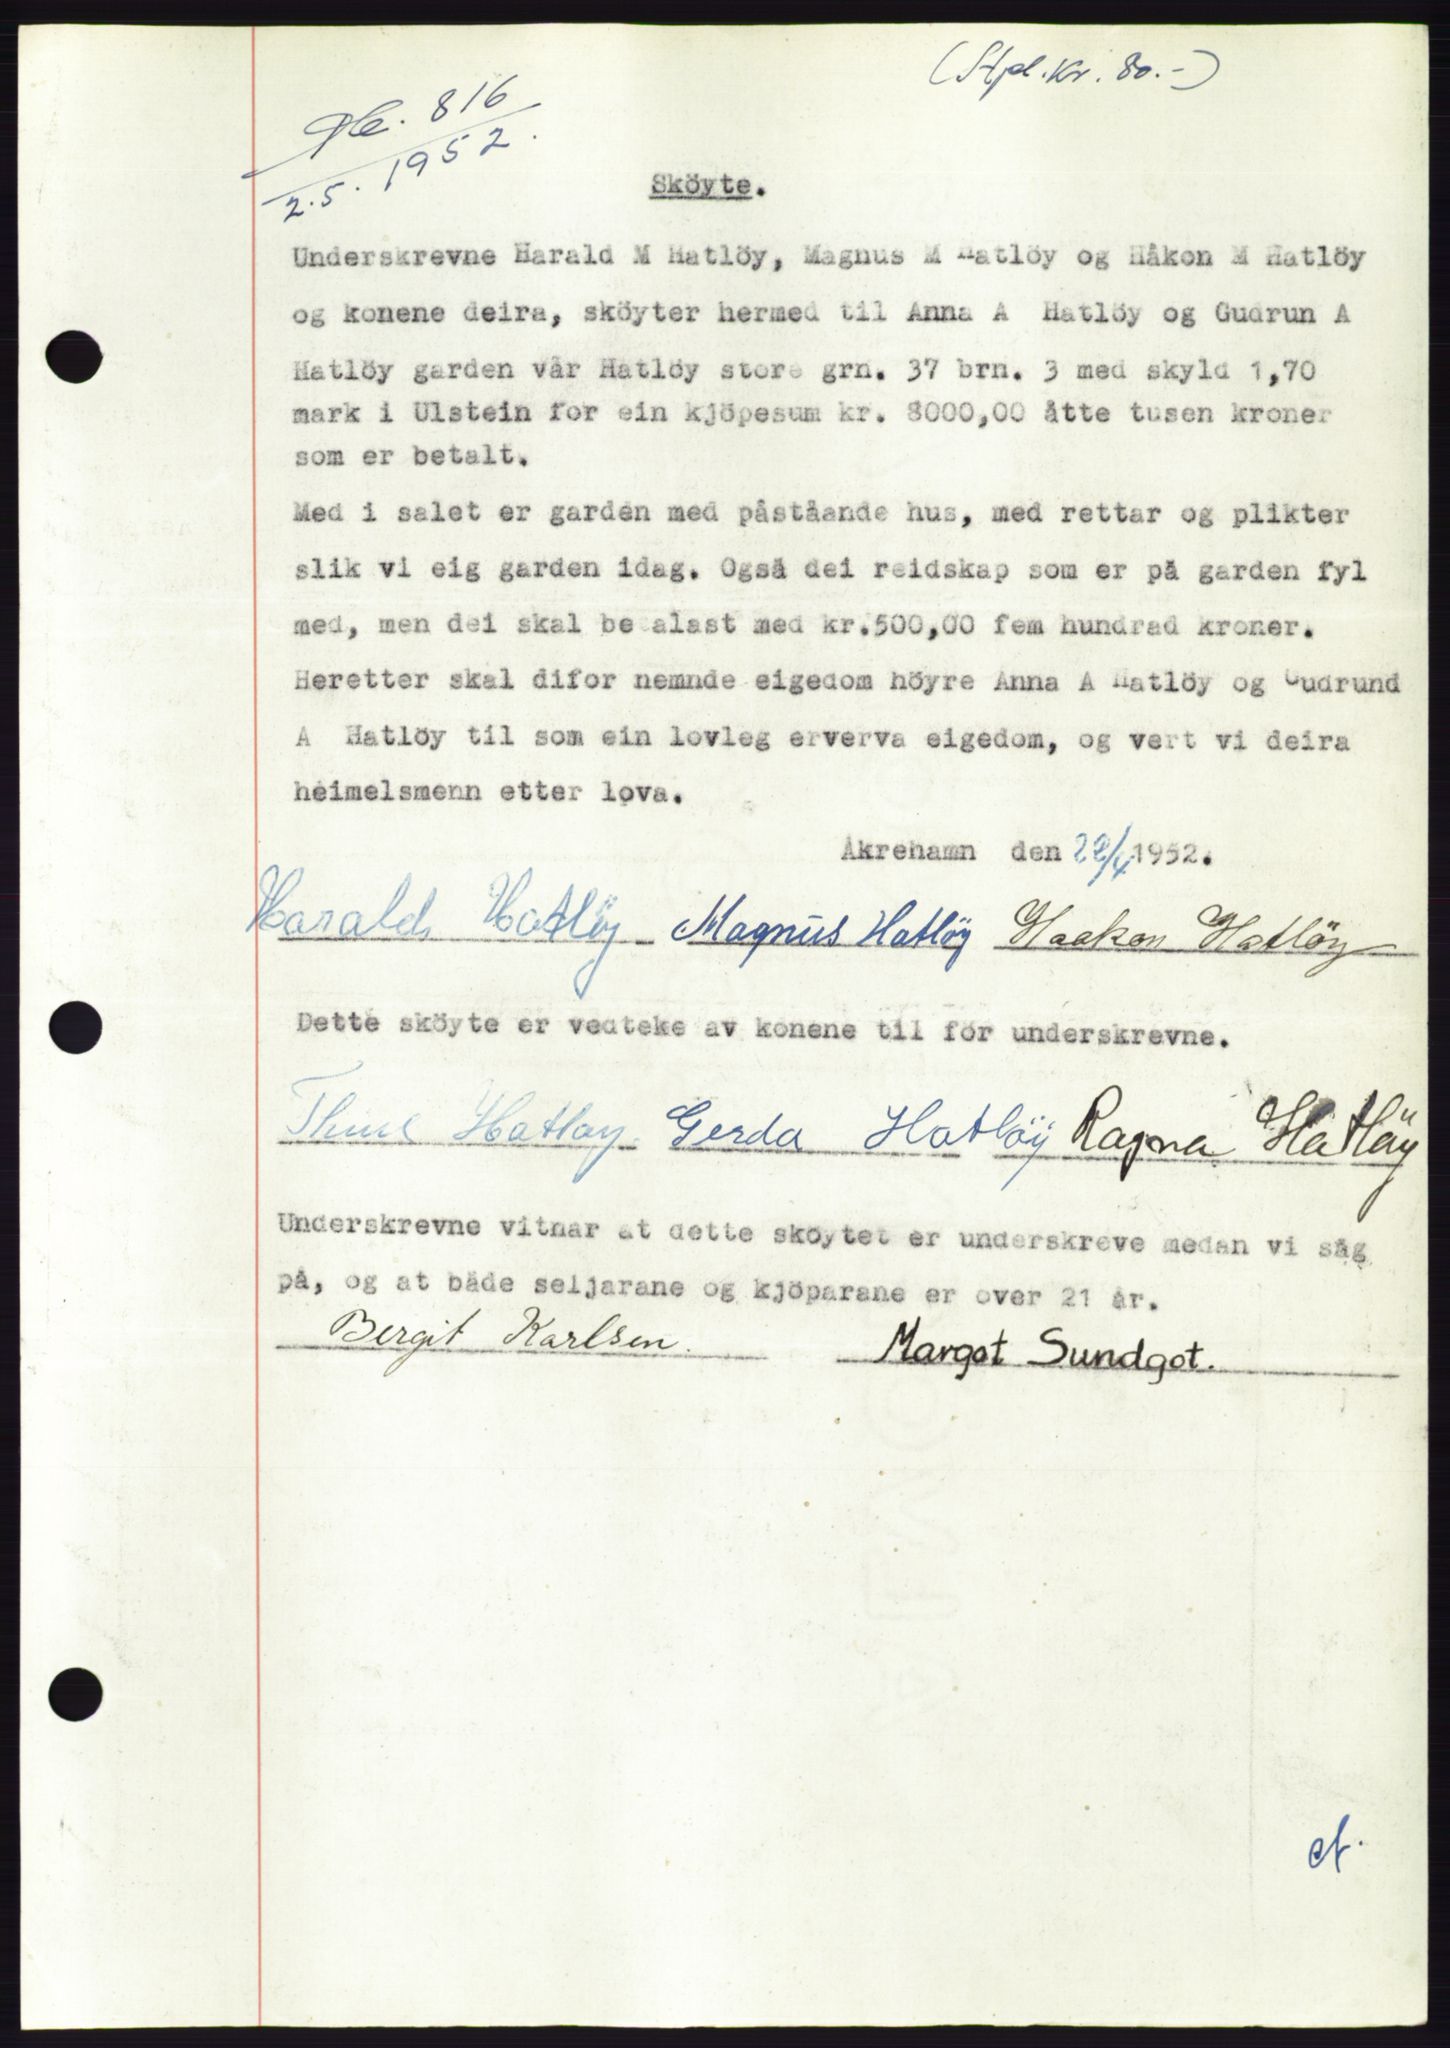 (Stpl. kr. 80.-)
816
2.5. 1952.
Sköyte.
Underskrevne Harald M Hatlöy, Magnus M Hatlöy og Håkon M Hatlöy
og konene deira, sköyter hermed til Anna A Hatlöy og Gudrun A
Hatlöy garden vår Hatlöy store grn. 37 brn. 3 med skyld 1,70
mark i Ulstein for ein kjöpesum kr. 8000,00 åtte tusen kroner
som er betalt.
Med i salet er garden med påståande hus, med rettar og plikter
slik vi eig garden idag. Også dei reidskap som er på garden fyl
med, men dei skal be alast med kr.500,00 fem hundrad kroner.
Heretter skal difor nemnde eigedom höyre Anna A Hatlöy og Gudrund
A Hatlöy til som ein lovleg erverva eigedom, og vert vi deira
heimelsmenn etter lova.
Åkrehamn den 1952.
Harald Hatlöy Magnus Hatlöy Haakon Hatlöy
Dette sköyte er vedteke av konene til for underskrevne.
Hatlöy. Gerda Hatlöy Ragna Hatlöy
Underskrevne vitnar at dette sköytet er underskreve medan vi såg
på, og at både seljarane og kjöparane er over 21 år.
Bergit Karlsen. Margot Sundgot.